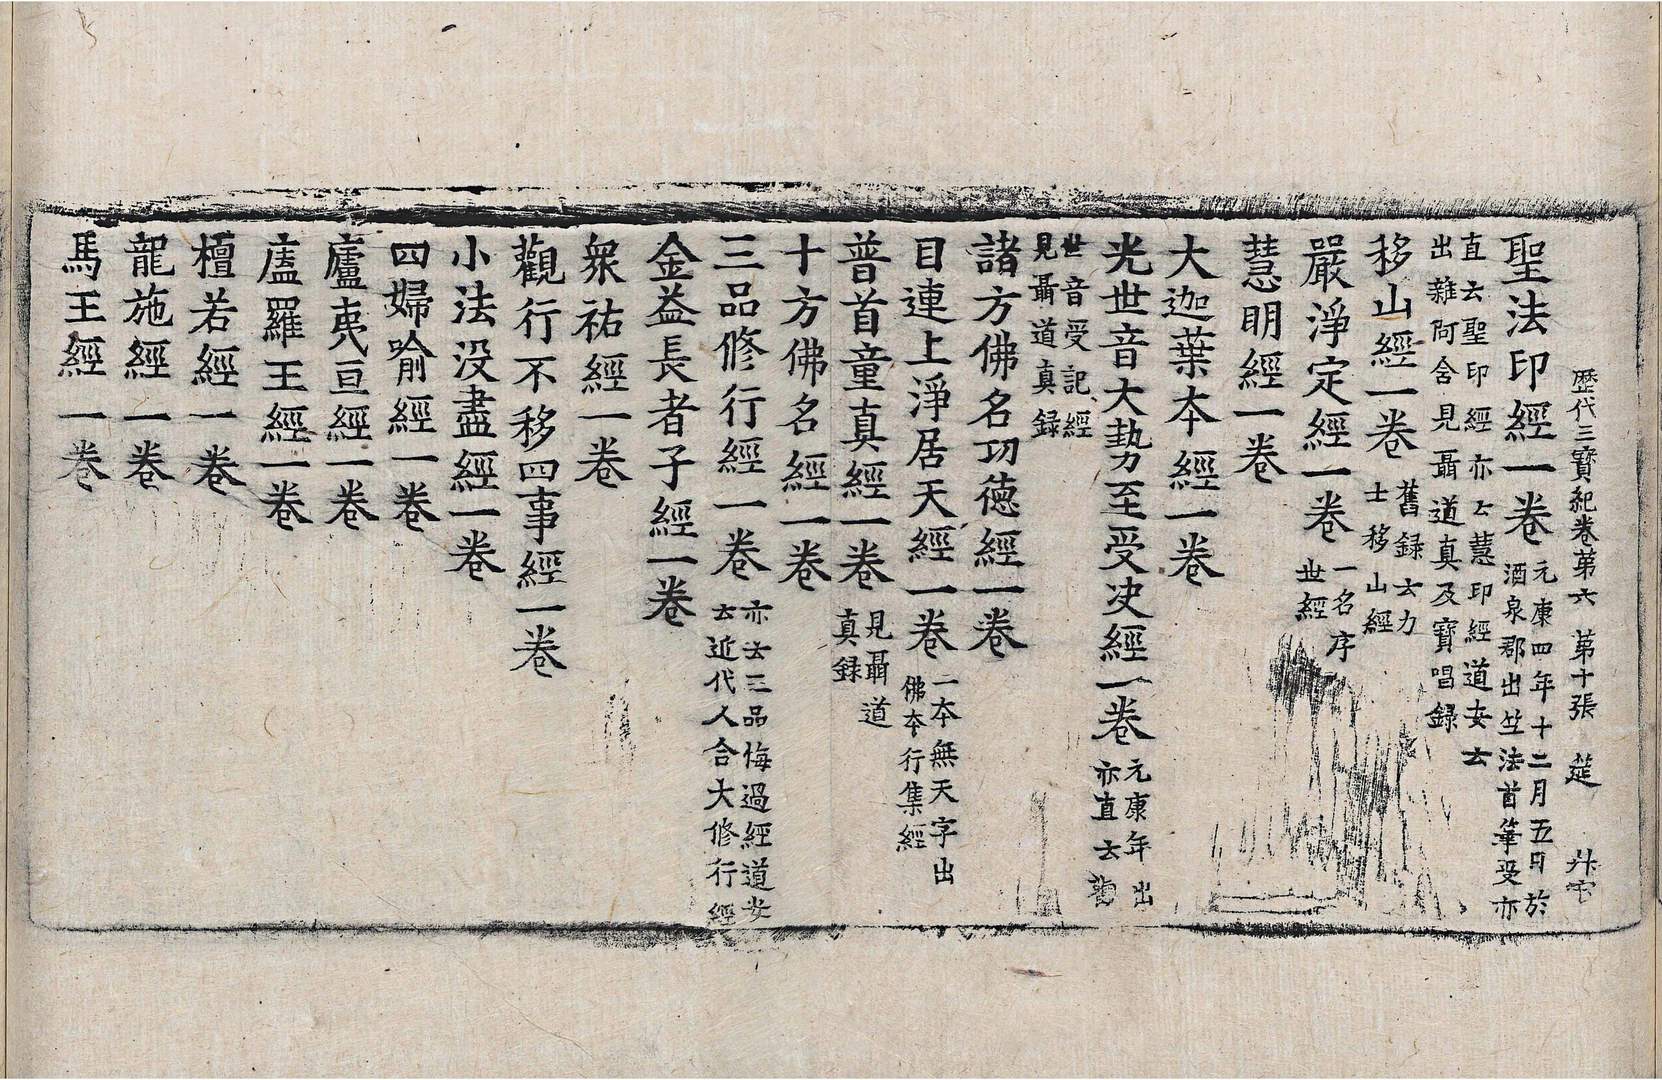 歷代三寶紀卷第六 第十張 筵
聖法印經一卷 元康四年十二月五日於
酒泉郡出竺法首筆受亦
直云聖印經亦云慧印經道安云
出雜阿含見聶道真及寶唱録
移山經一卷 舊録云力
士移山經
嚴淨定經一卷 一名序
世經
慧明經一卷
大迦葉本經一卷
光世音大勢至受决經一卷 元康年出
亦直云觀
世音受記經
見聶道真録
諸方佛名功德經一卷
目連上淨居天經一卷 一本無天字出
佛本行集經
普首童真經一卷 見聶道
真録
十方佛名經一卷
三品修行經一卷 亦云三品悔過經道安
云近代人合大修行經
金益長者子經一卷
衆祐經一卷
觀行不移四事經一卷
小法没盡經一卷
四婦喻經一卷
廬夷亘經一卷
廅羅王經一卷
檀若經一卷
龍施經一卷
馬王經一卷